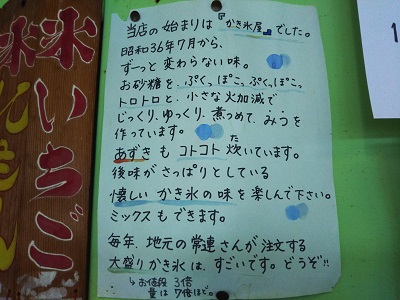 当店の始まりは『かき氷屋』でした。
昭和36年7月から、
ずーっと変わらない味。
お砂糖を、ぷくっ、ぽこっ、ぷくっ、ぽこっ、
トロトロと、小さな火加減で
じっくり、ゆっくり、煮つめて、みつを
作っています。
あずきもコトコト炊いています。
た
後味がさっぱりとしている
懐しいかき氷の味を楽しんで下さい。
ミックスもできます。
毎年、地元の常連さんが注文する
大盛りかき氷は、すごいです。どうぞ!!
↳お値段3倍
量は7倍ほど。
氷いちご
氷
1